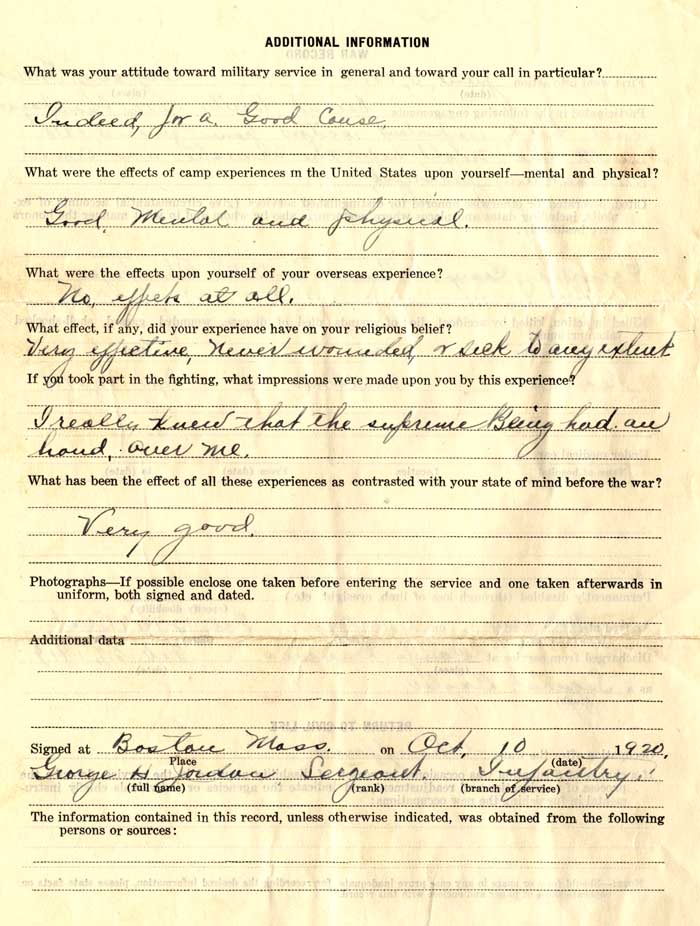 ADDITIONAL INFORMATION
What was your attitude toward military service in general and toward your call in particular?
Indeed, for a. Good Couse,
What were the effects of camp experiences in the United States upon yourself—mental and physical?
Good, Mental and physical.
What were the effects upon yourself of your overseas experience?
No, effects at all.
What effect, if any, did your experience have on your religious belief?
Very effective, never wounded, or sick to any extent
If you took part in the fighting, what impressions were made upon you by this experience?
I really knew that the supreme Being had an
hand, over me.
What has been the effect of all these experiences as contrasted with your state of mind before the war?
Very good.
Photographs—If possible enclose one taken before entering the service and one taken afterwards in
uniform, both signed and dated.
Additional data
Signed at Boston Mass. on Oct, 10 1920,
Place (date)
George H Jordan Sergeant Infantry.
(full name) (rank) (branch of service)
The information contained in this record, unless otherwise indicated, was obtained from the following
persons or sources: